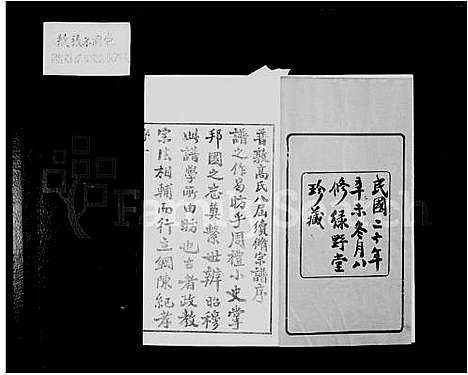 民國二十年
辛未冬月八
修綠野堂
珍藏
普敦高氏八屆續脩宗譜序
譜之作易昉乎周禮小史掌
邦國之志奠繫世辨昭穆
此譜學所由昉也古者政教
宗法相輔而行立綱陳紀孝
FamilySearch